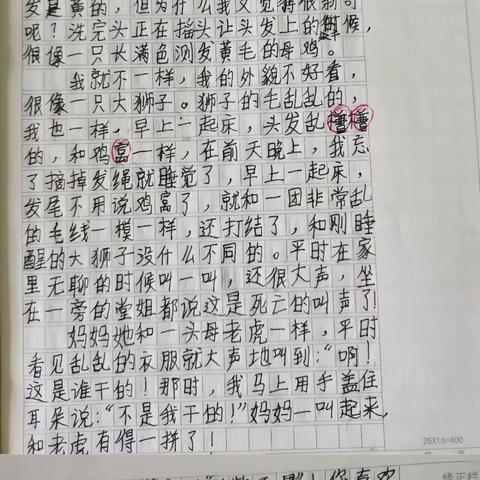 发是黄的，但为什么我又觉得很新奇
呢？洗完头正在摇头让头发上的时候，
很像一只长满色测发黄毛的母鸡。
我就不一样，我的外貌不好看，
很像一只大狮子。狮子的毛乱乱的，
我也一样，早上一起床，头发乱糟糟
的，和鸡窝一样，在前天晚上，我忘
了摘掉发绳就睡觉了，早上一起床，
发尾不用说鸡窝了，就和一团非常乱
的毛线一模一样，还打结了，和刚睡
醒的大狮子没什么不同的。平时在家
里无聊的时候叫一叫，还很大声，坐
在一旁的堂姐都说这是死亡的叫声了！
妈妈她和一头母老虎一样，平时
看见乱乱的衣服就大声地叫到：“啊！
这是谁干的！那时，我马上用手盖住
耳朵说：“不是我干的！”妈妈一叫起来，
和老虎有得一拼了！
25X16=400
你喜欢
修正栏